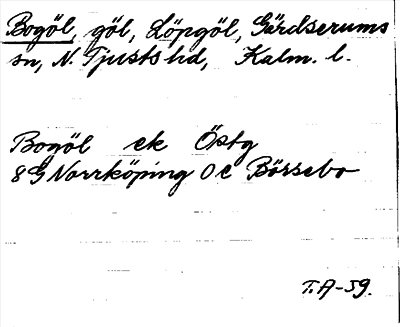 Bogöl, göl, Löpgöl, Gärdserums
sn, N. Tjusts hd, Kalm. l.
Bogöl ek Östg
8G Norrköping 0e Börsebo
T.A-59.